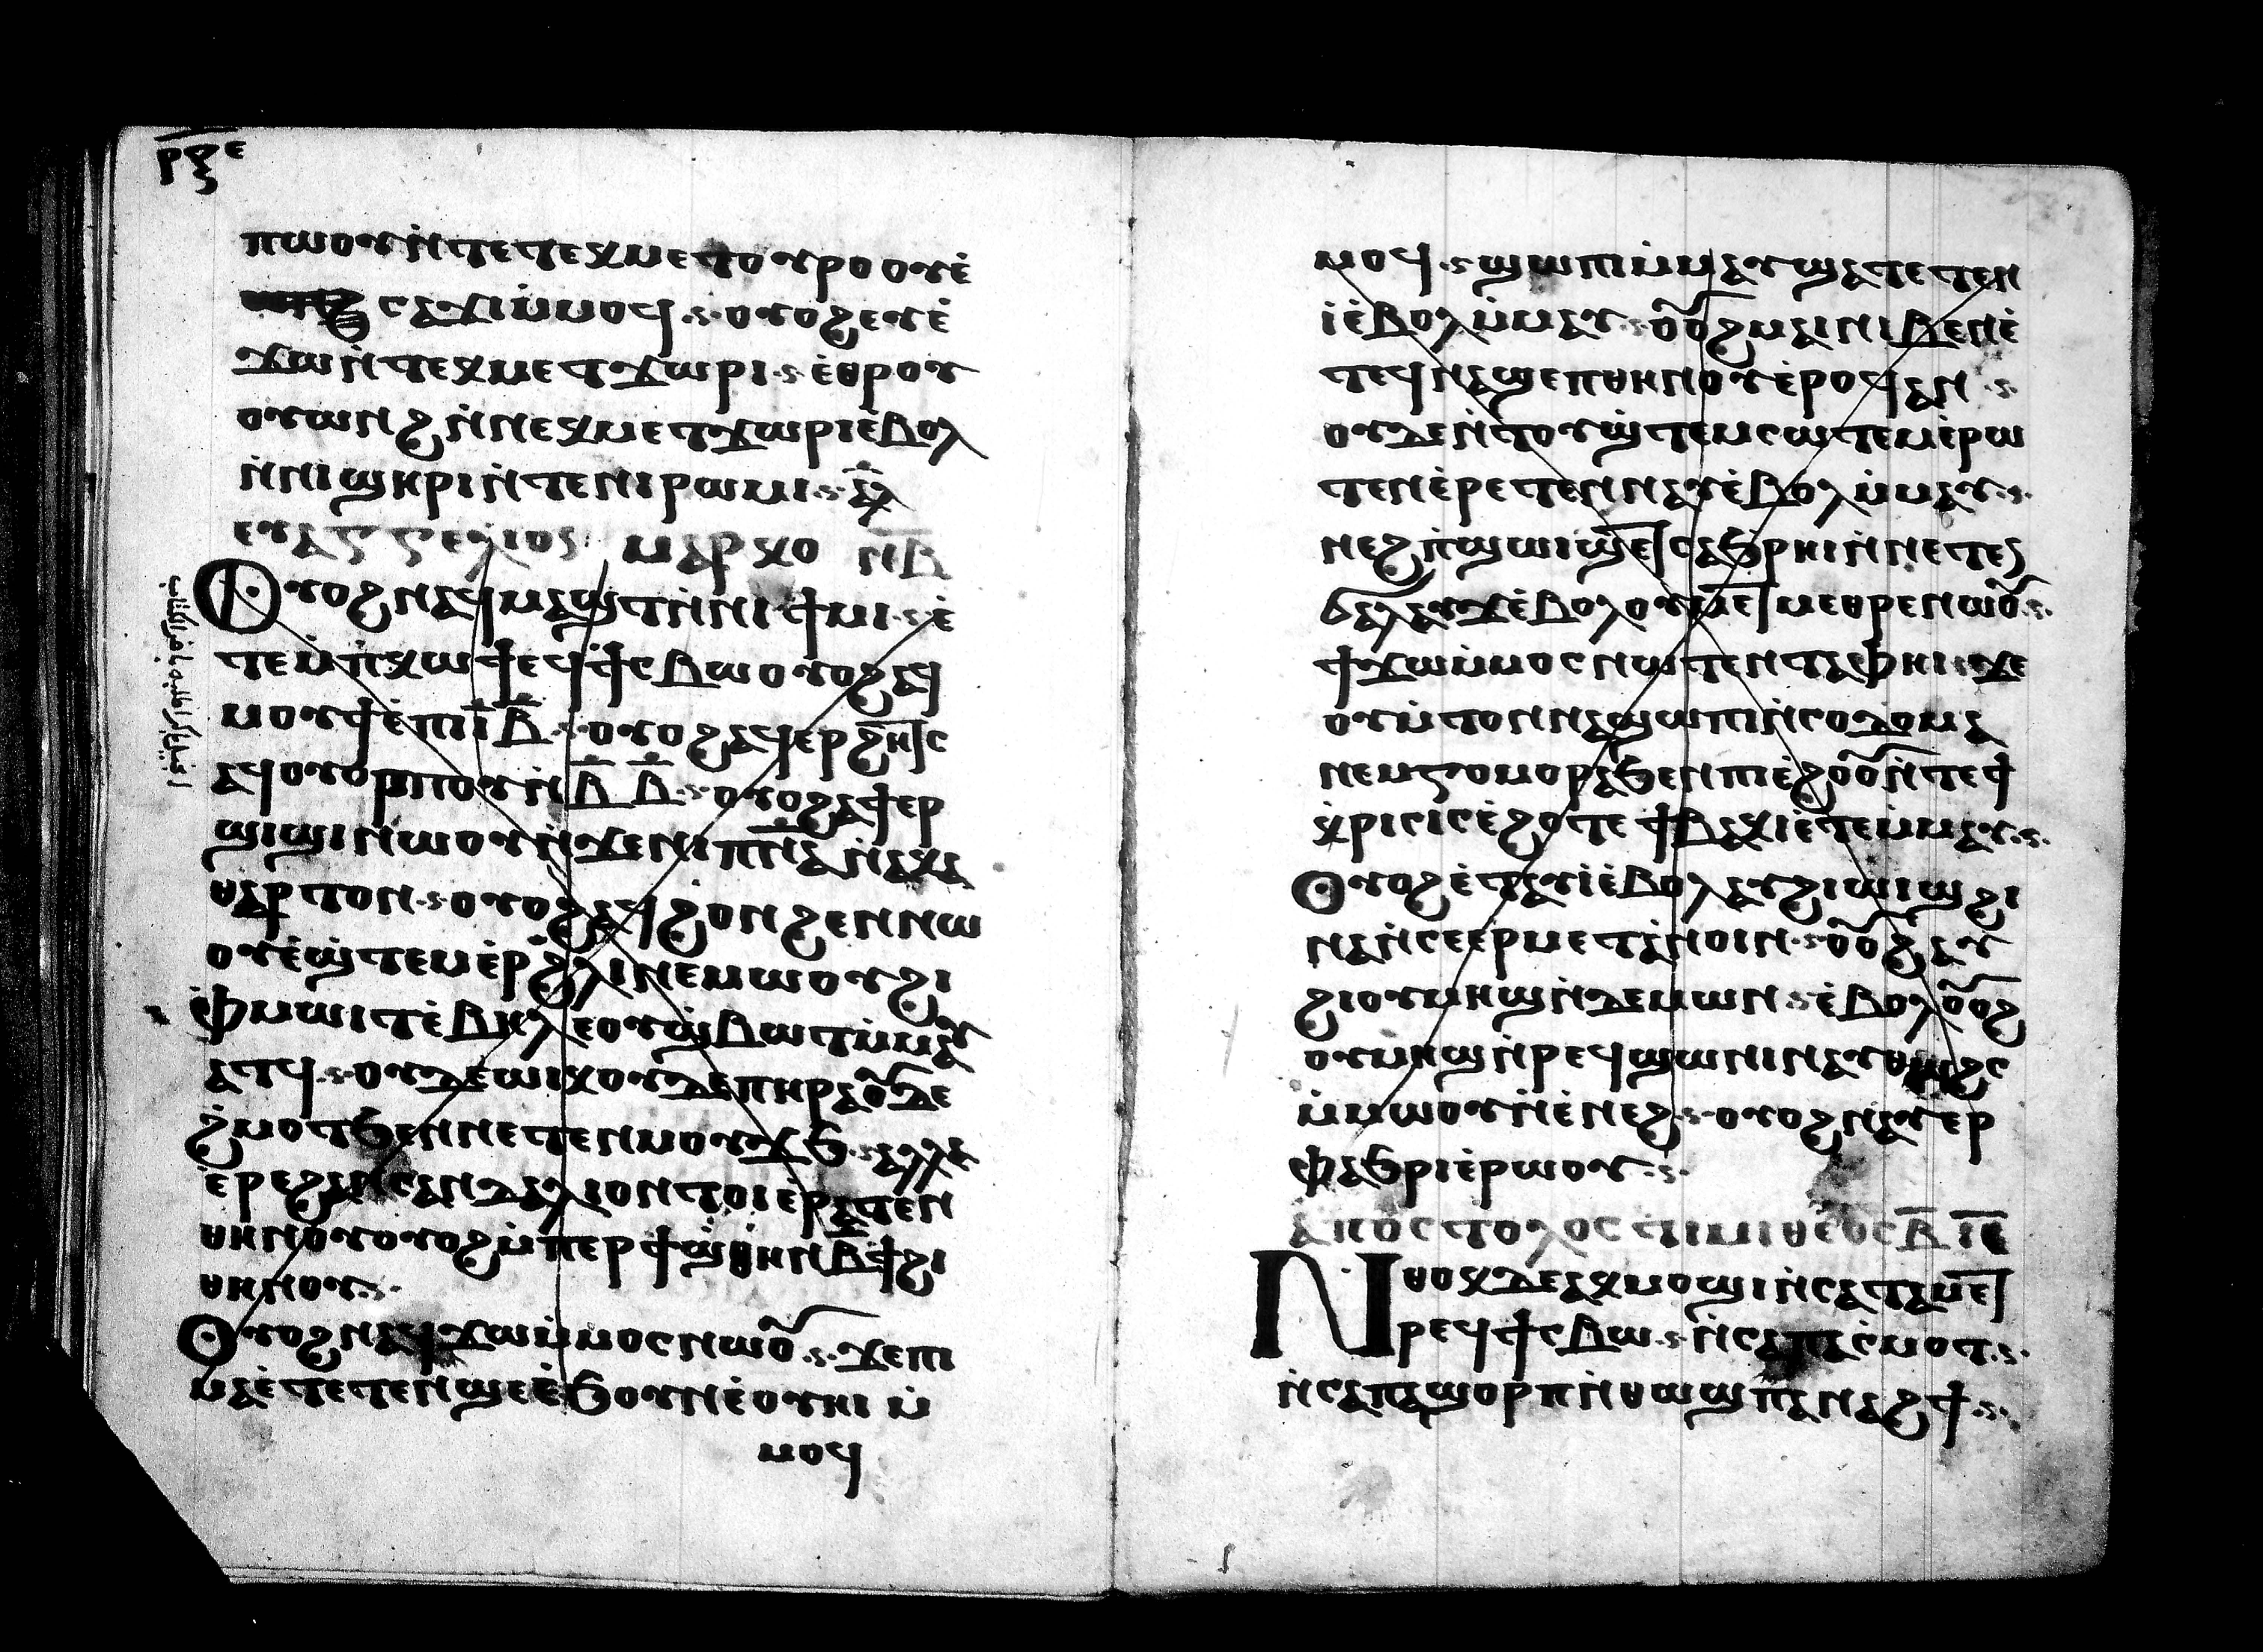 ⲣⲝⲉ
ⲡⲱⲟⲩ ⲛ̀ⲧⲉ ⲧⲉⲕⲙⲉⲧⲟⲩⲣⲟ ⲟⲩⲉ̀
ⲥⲁϫⲓ ⲙ̀ⲙⲟϥ ⲟⲩⲟϩ ⲉⲩⲉ̀
ϫⲱ ⲛ̀ⲧⲉⲕⲙⲉⲧϫⲱⲣⲓ ⲉ̀ⲑⲣⲟⲩ
ⲟⲩⲱⲛϩ ⲛ̀ⲛⲉⲕⲙⲉⲧϫⲱⲣⲓ ⲉ̀ⲃⲟⲗ
ⲛ̀ⲛⲓϣⲏⲣⲓ ⲛ̀ⲧⲉ ⲛⲓⲣⲱⲙⲓ ⲁⲗ
ⲉⲩⲁⲅⲅⲉⲗⲓⲟⲥ ⲙⲁⲣⲕⲟ ⲛ̅ⲃ̅
Ⲟⲩⲟϩ ⲛⲁϥⲙⲁϣⲧ ⲛ̀ⲛⲓϯⲙⲓ ⲉ̀
ⲧⲉⲙ̀ⲡⲕⲱϯ ⲉϥϯⲥⲃⲱ ⲟⲩⲟϩ ⲁϥ
ⲙⲟⲩϯ ⲉ̀ⲡⲓⲓ̅ⲃ̅ ⲟⲩⲟϩ ⲁϥⲉⲣϩⲏⲧⲥ
ⲁϥⲟⲩⲟⲣⲡⲟⲩ ⲛ̀ⲃ̅ ⲃ̅ ⲟⲩⲟϩ ⲁϥⲉⲣ
ϣⲓϣⲓ ⲛⲱⲟⲩ ⲛ̀ϫⲉⲛ ⲛⲓⲡⲛ̅ⲁ̅ ⲛ̀ⲁⲕⲁ
ⲑⲁⲣⲧⲟⲛ ⲟⲩⲟϩ ⲁϥϩⲟⲛϩⲉⲛ ⲛⲱ
ⲟⲩ ⲉ̀ϣ̀ⲧⲉⲙⲉ̀ⲣϩⲗⲓ ⲛⲉⲙⲱⲟⲩ ϩⲓ
ⲫⲙⲱⲓⲧ ⲉ̀ⲃⲏⲗ ⲉⲟⲩϣ̀ⲃⲱⲧ ⲙ̀ⲙⲁⲩ
ⲁⲧϥ ⲟⲩⲇⲉ ⲱⲓⲕ ⲟⲩⲇⲉ ⲡⲏⲣⲁ ⲟⲩⲇⲉ
ϩⲙⲟⲧ ϧⲉⲛ ⲛⲉⲧⲉⲛⲙⲟⲩϫϧ ⲁⲗⲗⲁ
ⲉ̀ⲣⲉ ϩⲁⲛⲥⲁⲛⲇⲁⲗⲓⲟⲛ ⲧⲟⲓ ⲉ̀ⲣⲁⲧⲉⲛ
ⲑⲏⲛⲟⲩ ⲟⲩⲟϩ ⲙ̀ⲡⲉⲣϯϣ̀ⲑⲏⲛ ⲃ̅ϯ ϩⲓ
ⲑⲏⲛⲟⲩ
Ⲟⲩⲟϩ ⲛⲁϥϫⲱ ⲙ̀ⲙⲟⲥ ⲛⲱⲟⲩ ϫⲉ ⲡⲓ
ⲙⲁ ⲉ̀ⲧⲉⲧⲉⲛϣⲉ ⲉ̀ϧⲟⲩⲛ ⲉ̀ⲟⲩⲏⲓ ⲙ̀
ⲙⲟϥ
ⲙⲟϥ ϣⲱⲡⲓ ⲙ̀ⲙⲁⲩ ϣⲁⲧⲉⲧⲉⲛ
ⲓ̀ ⲉ̀ⲃⲟⲗ ⲙ̀ⲙⲁⲩ ⲟⲩⲟϩ ⲙⲁⲓ ⲛⲓⲃⲉⲛ ⲉ̀
ⲧⲉϥⲛⲁϣⲉⲡⲑⲏⲛⲟⲩ ⲉ̀ⲣⲟϥ ⲁⲛ
ⲟⲩⲇⲉ ⲛ̀ⲧⲟⲩϣ̀ⲧⲉⲙⲥⲱⲧⲉⲙ ⲉ̀ⲣⲱ
ⲧⲉⲛ ⲉ̀ⲣⲉⲧⲉⲛⲛⲁⲩ ⲉ̀ⲃⲟⲗ ⲙ̀ⲙⲁⲩ
ⲛⲉϩ ⲡ̀ϣⲱⲓϣ ⲉⲧⲥⲁϧⲣⲏⲓ ⲛ̀ⲛⲉⲧⲉⲛ
ϭⲁⲗⲁⲩϫ ⲉ̀ⲃⲟⲗ ⲉⲩⲙⲉⲧⲙⲉⲑⲣⲉ ⲛⲱⲟⲩ
ϯϫⲱ ⲙ̀ⲙⲟⲥ ⲛⲱⲧⲉⲛ ⲧⲁⲫⲙⲏⲓ ϫⲉ
ⲟⲩⲙ̀ⲧⲟⲛ ⲛⲁϣⲱⲡⲓ ⲛ̀ⲥⲟⲇⲟⲙⲁ
ⲛⲉⲙ ⲅⲟⲙⲟⲣⲁ ϧⲉⲛ ⲡⲓⲉ̀ϩⲟⲟⲩ ⲛ̀ⲧⲉ ϯ
ⲕ̀ⲣⲓⲥⲓⲥ ⲉ̀ϩⲟⲧⲉ ϯⲃⲁⲕⲓ ⲉ̀ⲧⲉⲙ̀ⲙⲁⲩ
Ⲟⲩⲟϩ ⲉ̀ⲧⲁⲩⲓ̀ ⲉ̀ⲃⲟⲗ ⲁⲩϩⲓⲱⲓϣ ϩⲓ
ⲛⲁ ⲛ̀ⲥⲉⲉⲣⲙⲉⲧⲁⲛⲟⲓⲛ ⲟⲩⲟϩ ⲁⲩ
ϩⲓⲟⲩⲙⲏϣ ⲛ̀ⲇⲉⲙⲱⲛ ⲉ̀ⲃⲟⲗ ⲟⲩⲟϩ
ⲟⲩⲙⲏϣ ⲛ̀ⲣⲉϥϣⲱⲛⲓ ⲛⲁⲩⲑⲱϩⲥ
ⲙ̀ⲙⲱⲟⲩ ⲛ̀ⲉ̀ⲛⲉϩ ⲟⲩⲟϩ ⲛⲁⲩⲉⲣ
ⲫⲁϧⲣⲓ ⲉ̀ⲣⲱⲟⲩ
ⲁⲡⲟⲥⲧⲟⲗⲟⲥ ⲧⲓⲙⲓⲑⲉⲟⲥ ⲃ̅ ⲓ̅ⲉ̅
Ⲛⲑⲟⲕ ⲇⲉ ⲁⲕⲙⲟϣⲓ ⲛ̀ⲥⲁ ⲧⲁⲙⲉⲧ
ⲣⲉϥϯⲥⲃⲱ ⲛ̀ⲥⲁ ⲡⲁⲥⲙⲟⲧ
ⲛ̀ⲥⲁ ⲡⲁϣⲟⲣⲡ ⲛ̀ⲑⲱϣ ⲡⲁⲛⲁϩϯ